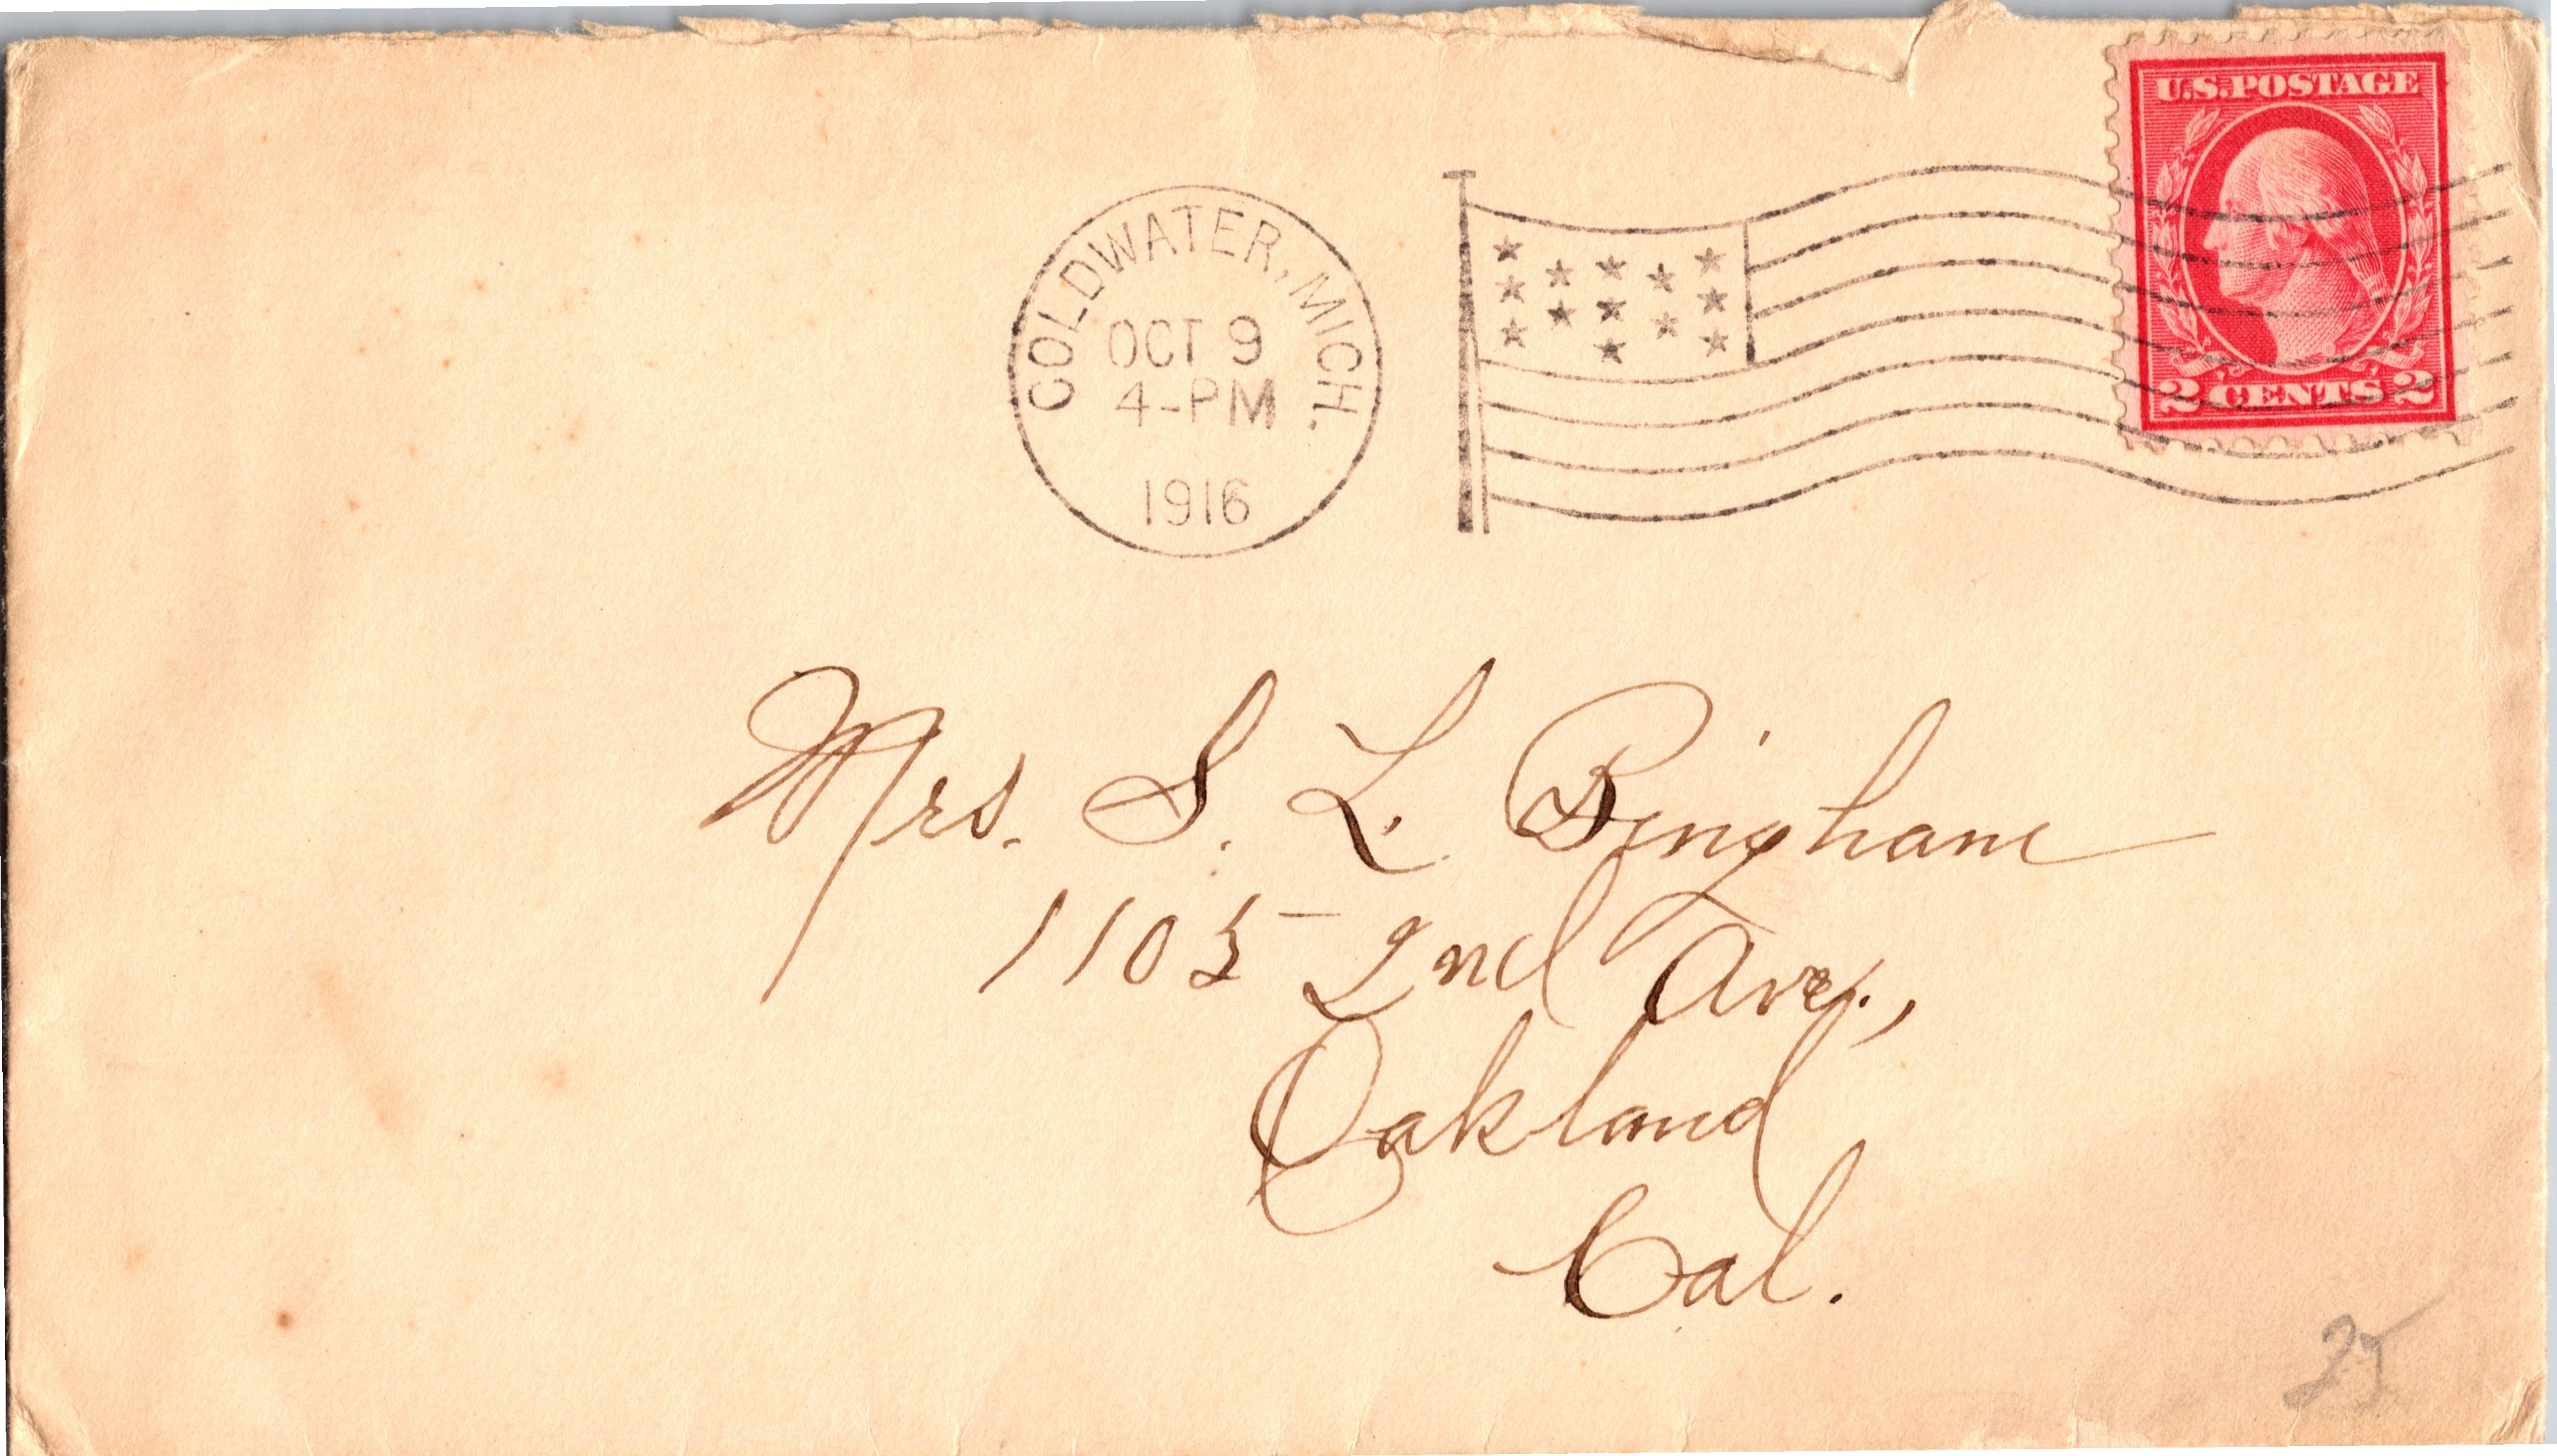 U.S. POSTAGE
2 CENTS 2
COLDWATER, MICH.
OCT 9
4-PM
1916
Mrs. S. L. Bingham
1105 2nd Ave.,
Oakland
Cal.
25